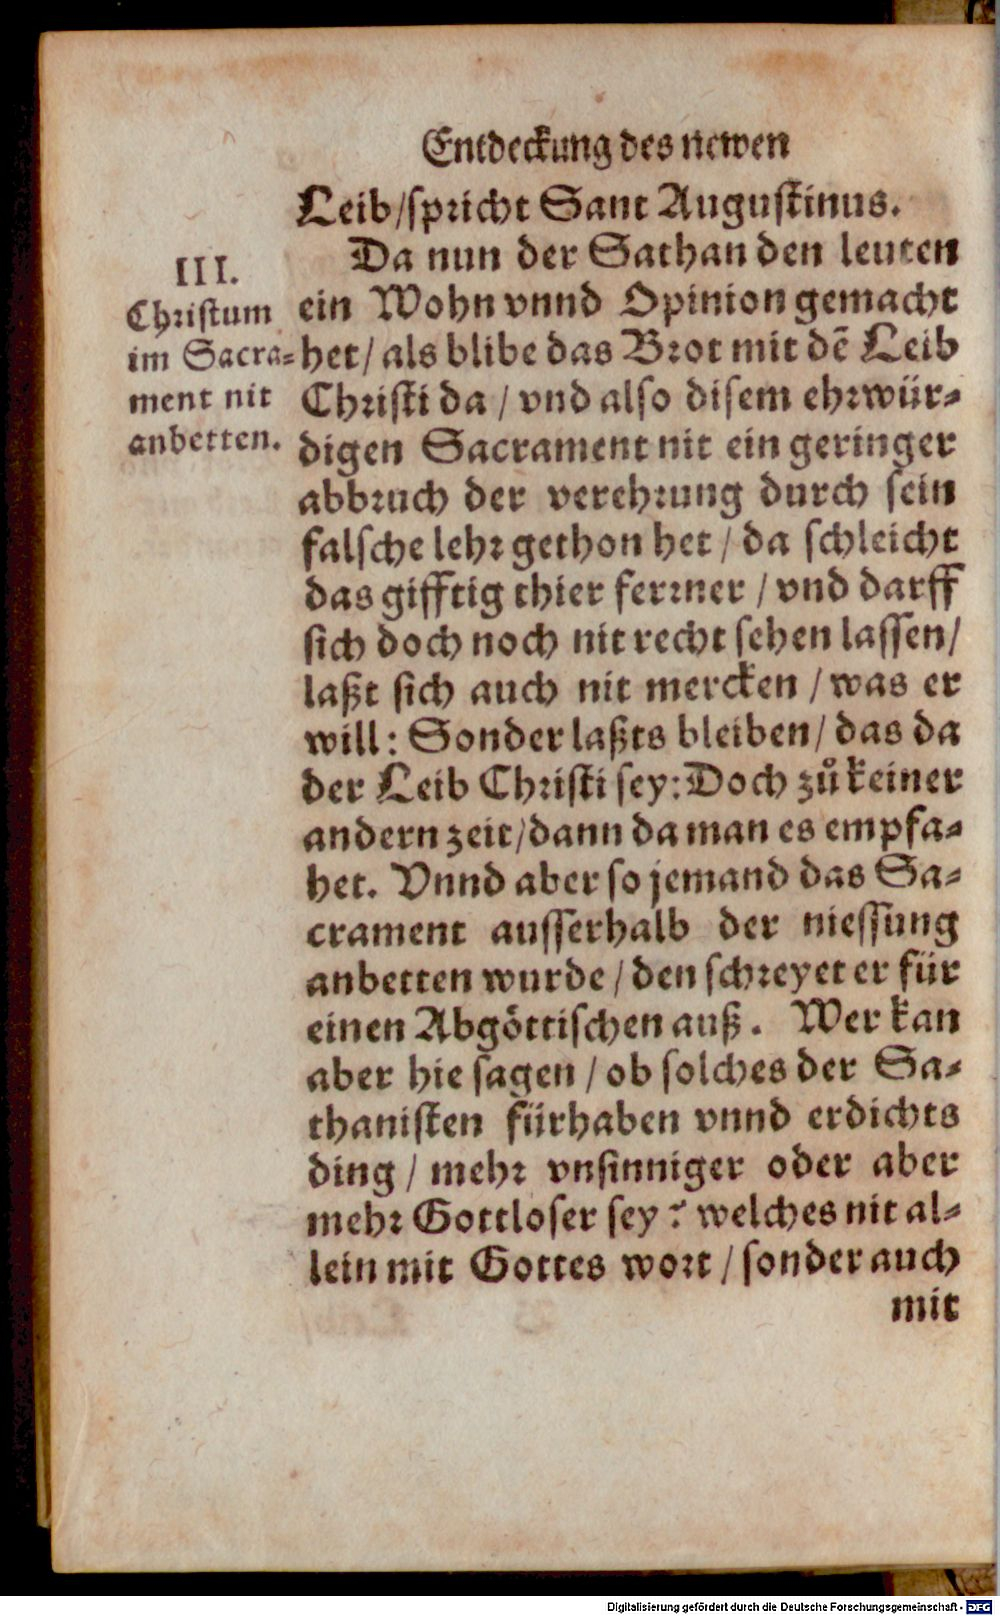 Entdeckung des newen
Leib/spricht Sant Augustinus.
Da nun der Sathan den leuten
ein Wohn vnnd Opinion gemacht
het/ als blibe das Brot mit dẽ Leib
Christi da / vnd also disem ehrwür-
digen Sacrament nit ein geringer
abbruch der verehrung durch sein
falsche lehr gethon het / da schleicht
das gifftig thier ferrner / vnd darff
sich doch noch nit recht sehen lassen/
laßt sich auch nit mercken / was er
will: Sonder laßts bleiben/ das da
der Leib Christi sey: Doch zů keiner
andern zeit/dann da man es empfa-
het. Vnnd aber so jemand das Sa-
crament ausserhalb der niessung
anbetten wurde / den schreyet er für
einen Abgöttischen auß. Wer kan
aber hie sagen / ob solches der Sa-
thanisten fürhaben vnnd erdichts
ding / mehr vnsinniger oder aber
mehr Gottloser sey? welches nit al-
lein mit Gottes wort / sonder auch
mit
III.
Christum
im Sacra-
ment nit
anbetten.
Digitalisierung gefördert durch die Deutsche Forschungsgemeinschaft - DFG